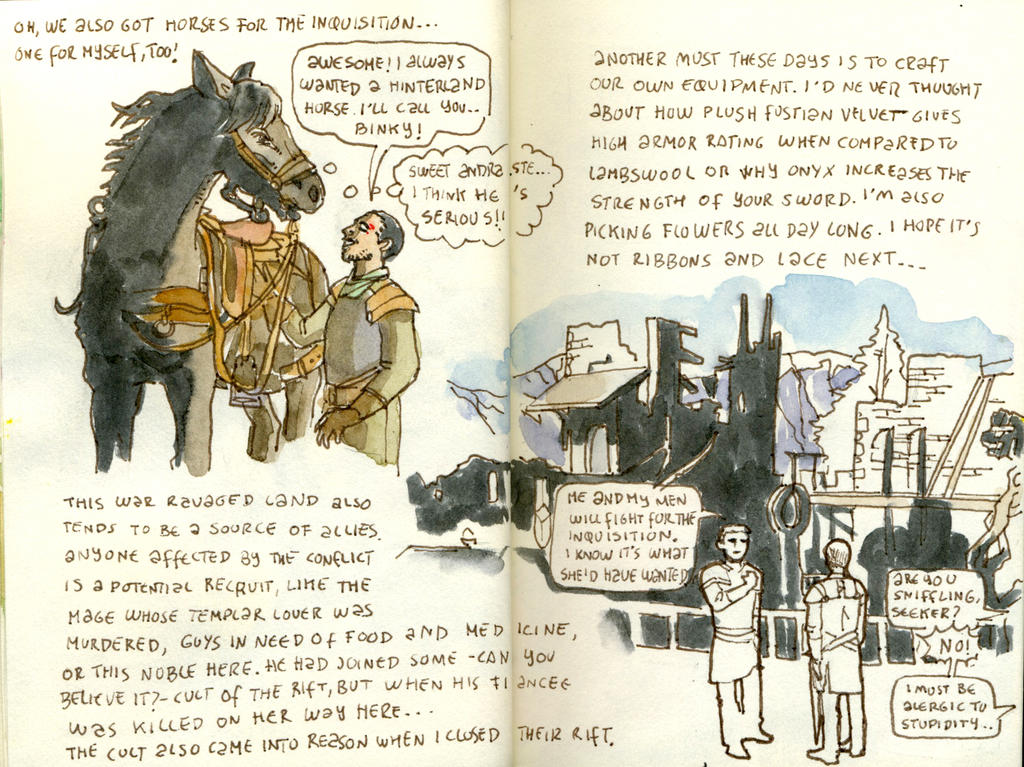 OH, WE ALSO GOT HORSES FOR THE INQUISITION...
ONE FOR MYSELF, TOO!
AWESOME! I ALWAYS
WANTED A HINTERLAND
HORSE. I'LL CALL YOU..
BINKY!
SWEET ANDRASTE...
I THINK HE'S
SERIOUS!!
THIS WAR RAVAGED LAND ALSO
TENDS TO BE A SOURCE OF ALLIES.
ANYONE AFFECTED BY THE CONFLICT
IS A POTENTIAL RECRUIT, LIKE THE
MAGE WHOSE TEMPLAR LOVER WAS
MURDERED, GUYS IN NEED OF FOOD AND MEDICINE,
OR THIS NOBLE HERE. HE HAD JOINED SOME -CAN YOU
BELIEVE IT?- CULT OF THE RIFT, BUT WHEN HIS FIANCEE
WAS KILLED ON HER WAY HERE...
THE CULT ALSO CAME INTO REASON WHEN I CLOSED THEIR RIFT.
ANOTHER MUST THESE DAYS IS TO CRAFT
OUR OWN EQUIPMENT. I'D NEVER THOUGHT
ABOUT HOW PLUSH FUSTIAN VELVET GIVES
HIGH ARMOR RATING WHEN COMPARED TO
LAMBSWOOL OR WHY ONYX INCREASES THE
STRENGTH OF YOUR SWORD. I'M ALSO
PICKING FLOWERS ALL DAY LONG. I HOPE IT'S
NOT RIBBONS AND LACE NEXT...
ME AND MY MEN
WILL FIGHT FOR THE
INQUISITION.
I KNOW IT'S WHAT
SHE'D HAVE WANTED
ARE YOU
SNIFFLING,
SEEKER?
NO!
I MUST BE
ALERGIC TO
STUPIDITY..